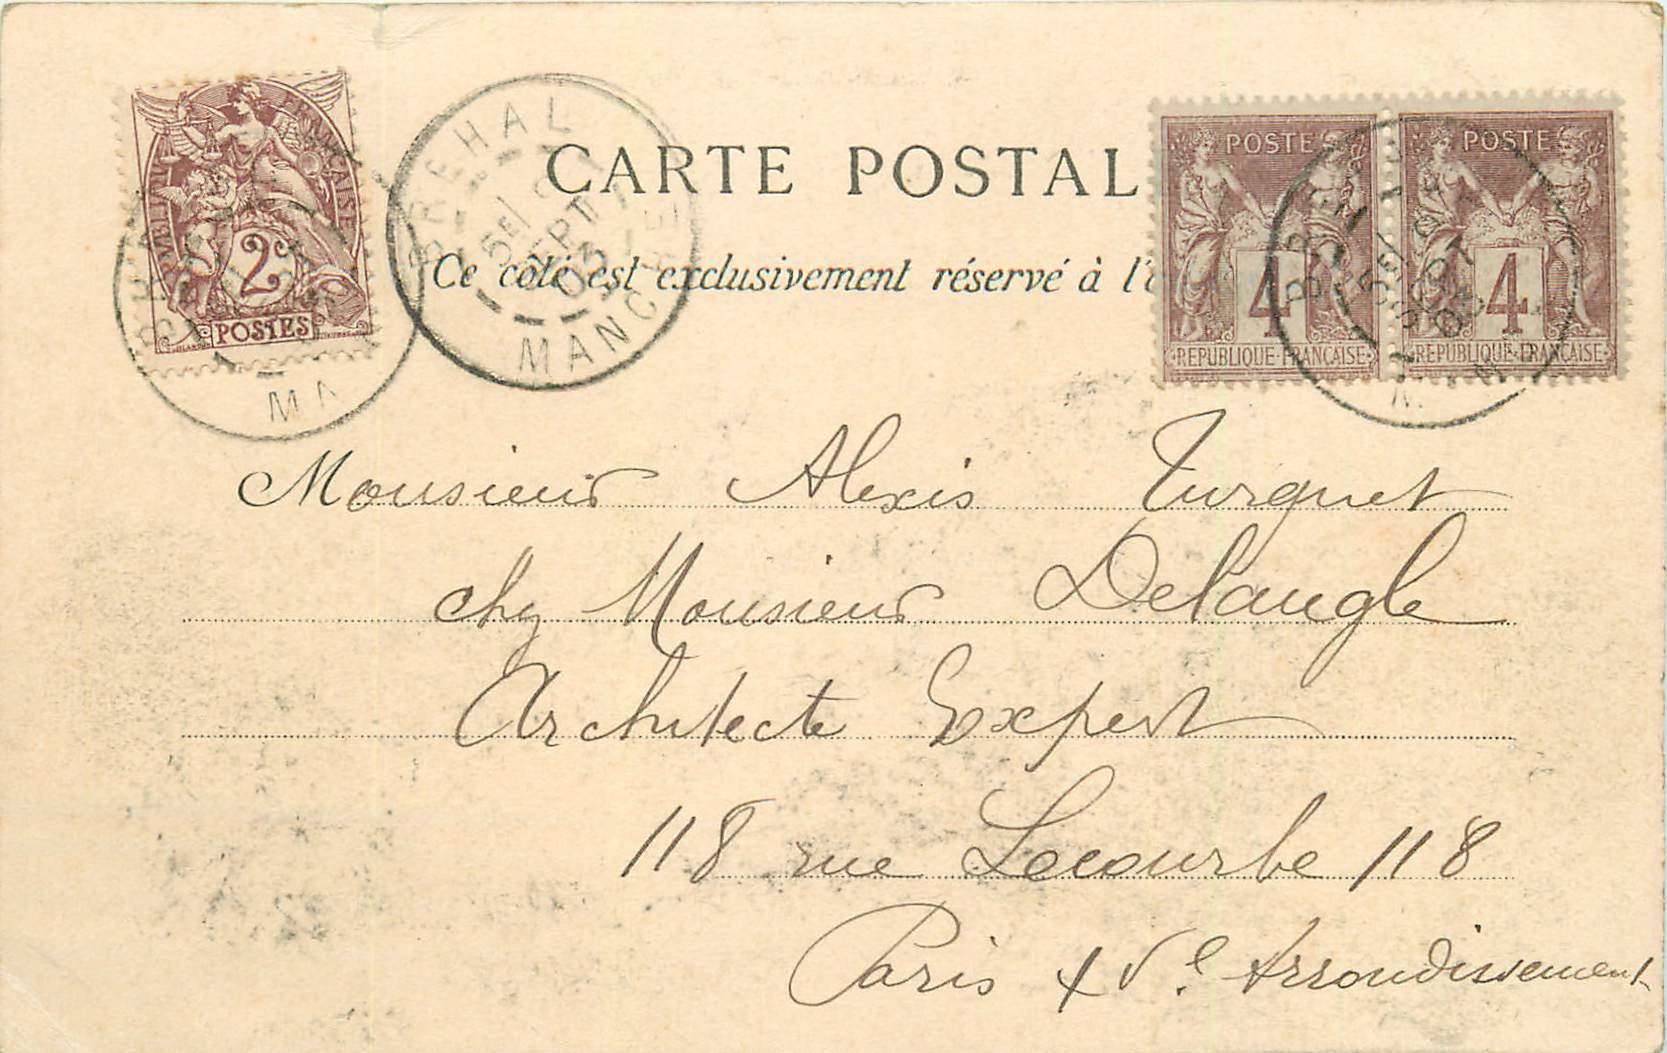 CARTE POSTAL
Ce côté est exclusivement réservé à l'
RÉPUBLIQUE FRANÇAISE
2
POSTES
BREHAL
5E/
SEPT
03
MANCHE
POSTE
4
REPUBLIQUE FRANÇAISE
POSTE
4
REPUBLIQUE FRANÇAISE
Monsieur Alexis Turquet
chez Monsieur Delangle
Architecte Expert
118 rue Lecourbe 118
Paris XVe Arrondissement